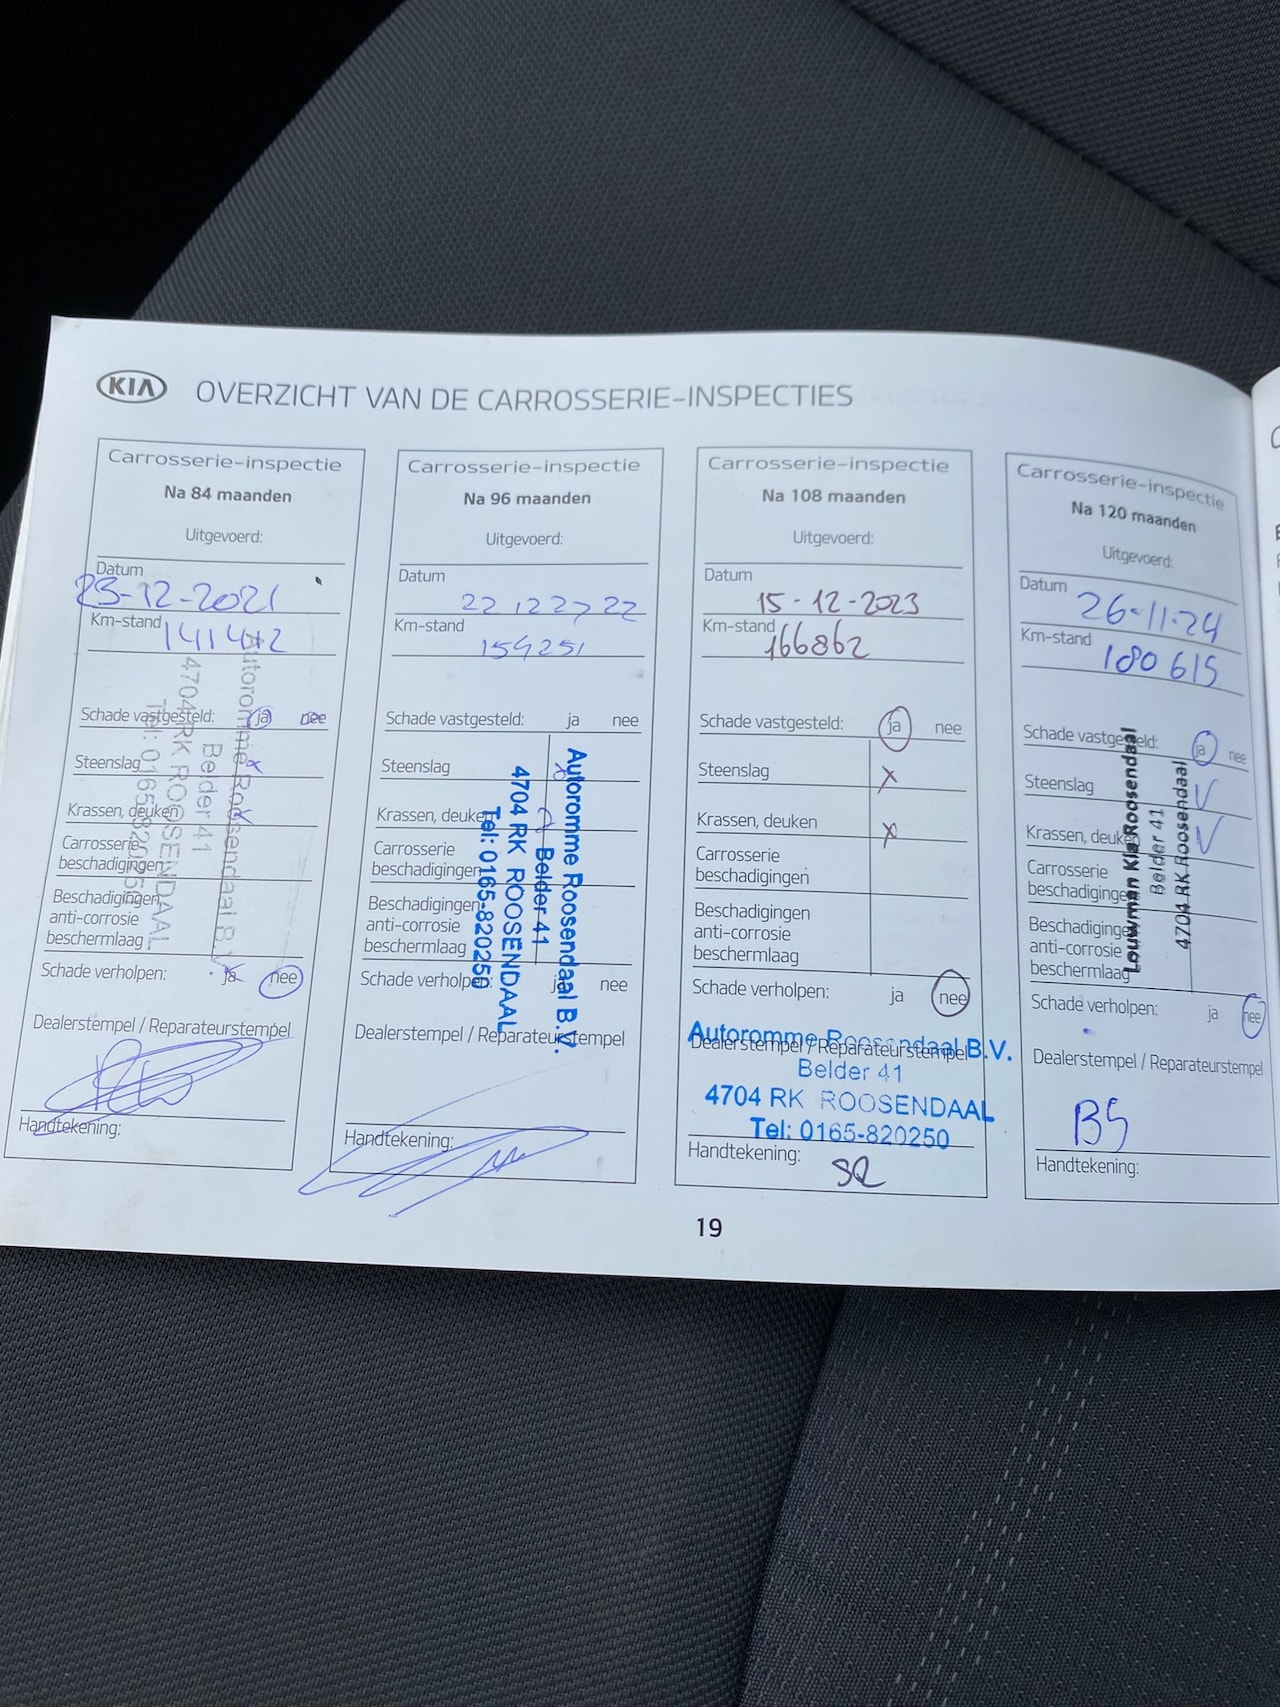 KIA OVERZICHT VAN DE CARROSSERIE-INSPECTIES
Carrosserie-inspectie
Na 84 maanden
Uitgevoerd:
Datum
23-12-2021
Km-stand
Schade vastgesteld: ja nee
Steenslag x
Krassen, deuken x
Carrosserie
beschadigingen
Beschadigingen
anti-corrosie
beschermlaag
Schade verholpen: ja nee
Autoromme Roosendaal B.V.
Belder 41
4704 RK ROOSENDAAL
Tel: 0165-820250
Dealerstempel / Reparateurstempel
Handtekening:
Carrosserie-inspectie
Na 96 maanden
Uitgevoerd:
Datum
Km-stand
154251
Schade vastgesteld: ja nee
Steenslag
Krassen, deuken
Carrosserie
beschadigingen
Beschadigingen
anti-corrosie
beschermlaag
Schade verholpen: ja nee
Autoromme Roosendaal B.V.
Belder 41
4704 RK ROOSENDAAL
Tel: 0165-820250
Dealerstempel / Reparateurstempel
Handtekening:
Carrosserie-inspectie
Na 108 maanden
Uitgevoerd:
Datum
15-12-2023
Km-stand
166862
Schade vastgesteld: ja nee
Steenslag x
Krassen, deuken x
Carrosserie
beschadigingen
Beschadigingen
anti-corrosie
beschermlaag
Schade verholpen: ja nee
Autoromme Roosendaal B.V.
Dealerstempel / Reparateurstempel
Belder 41
4704 RK ROOSENDAAL
Tel: 0165-820250
Handtekening:
SR
Carrosserie-inspectie
Na 120 maanden
Uitgevoerd:
Datum
26-11-24
Km-stand
180615
Schade vastgesteld: ja nee
Steenslag V
Krassen, deuken V
Carrosserie
beschadigingen
Beschadigingen
anti-corrosie
beschermlaag
Schade verholpen: ja nee
Louwman Kia Roosendaal
Belder 41
4704 RK Roosendaal
Dealerstempel / Reparateurstempel
BS
Handtekening:
19